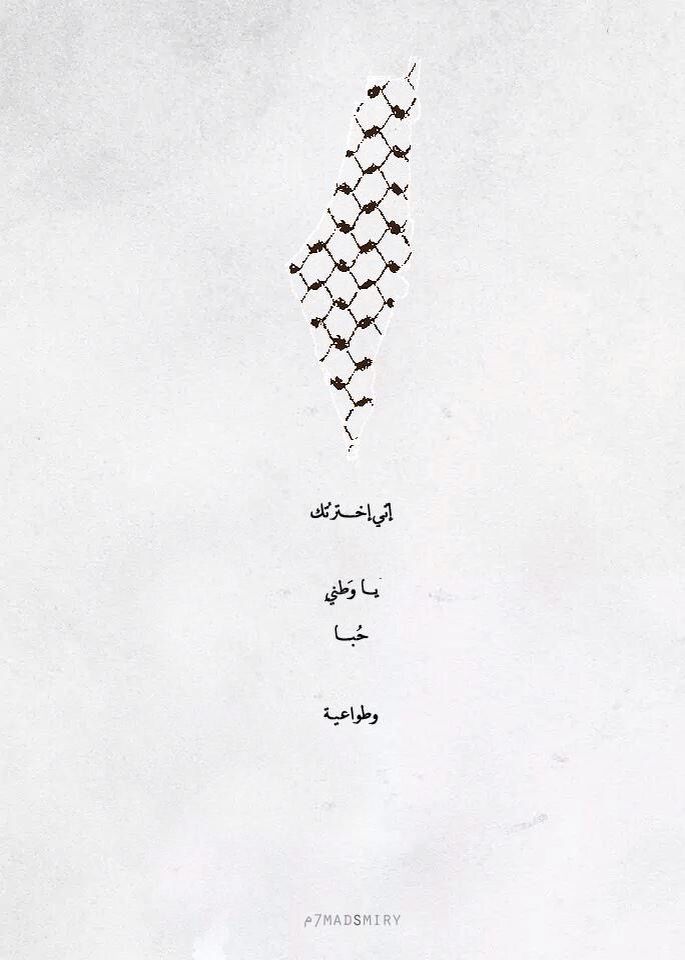 إنّي إخـترتُك
يـا وَطني
حُبـا
وطواعية
م7MADSMIRY